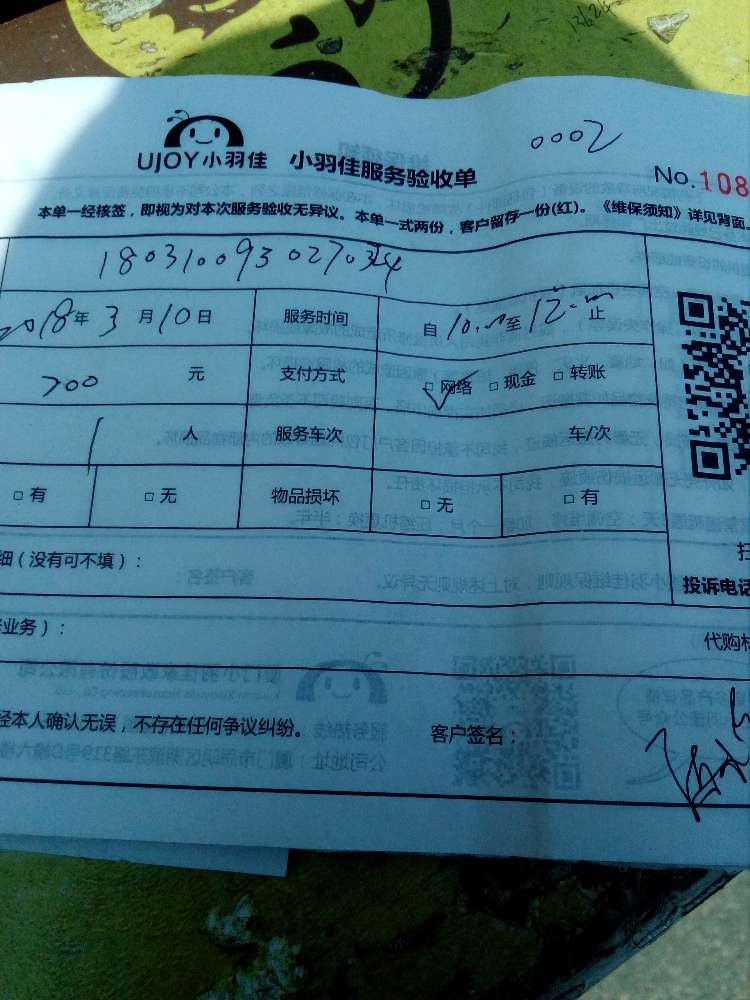 0002
UJOY小羽佳 小羽佳服务验收单
No.108
本单一经核签，即视为对本次服务验收无异议。本单一式两份，客户留存一份(红)。《维保须知》详见背面
2018年3月10日 服务时间 自10:00至12:00止
700元 支付方式 □网络 □现金 □转账
1人 服务车次 车/次
□有 □无 物品损坏 □无 □有
细（没有可不填）：
投诉电话
业务）： 代购
经本人确认无误，不存在任何争议纠纷。 客户签名：